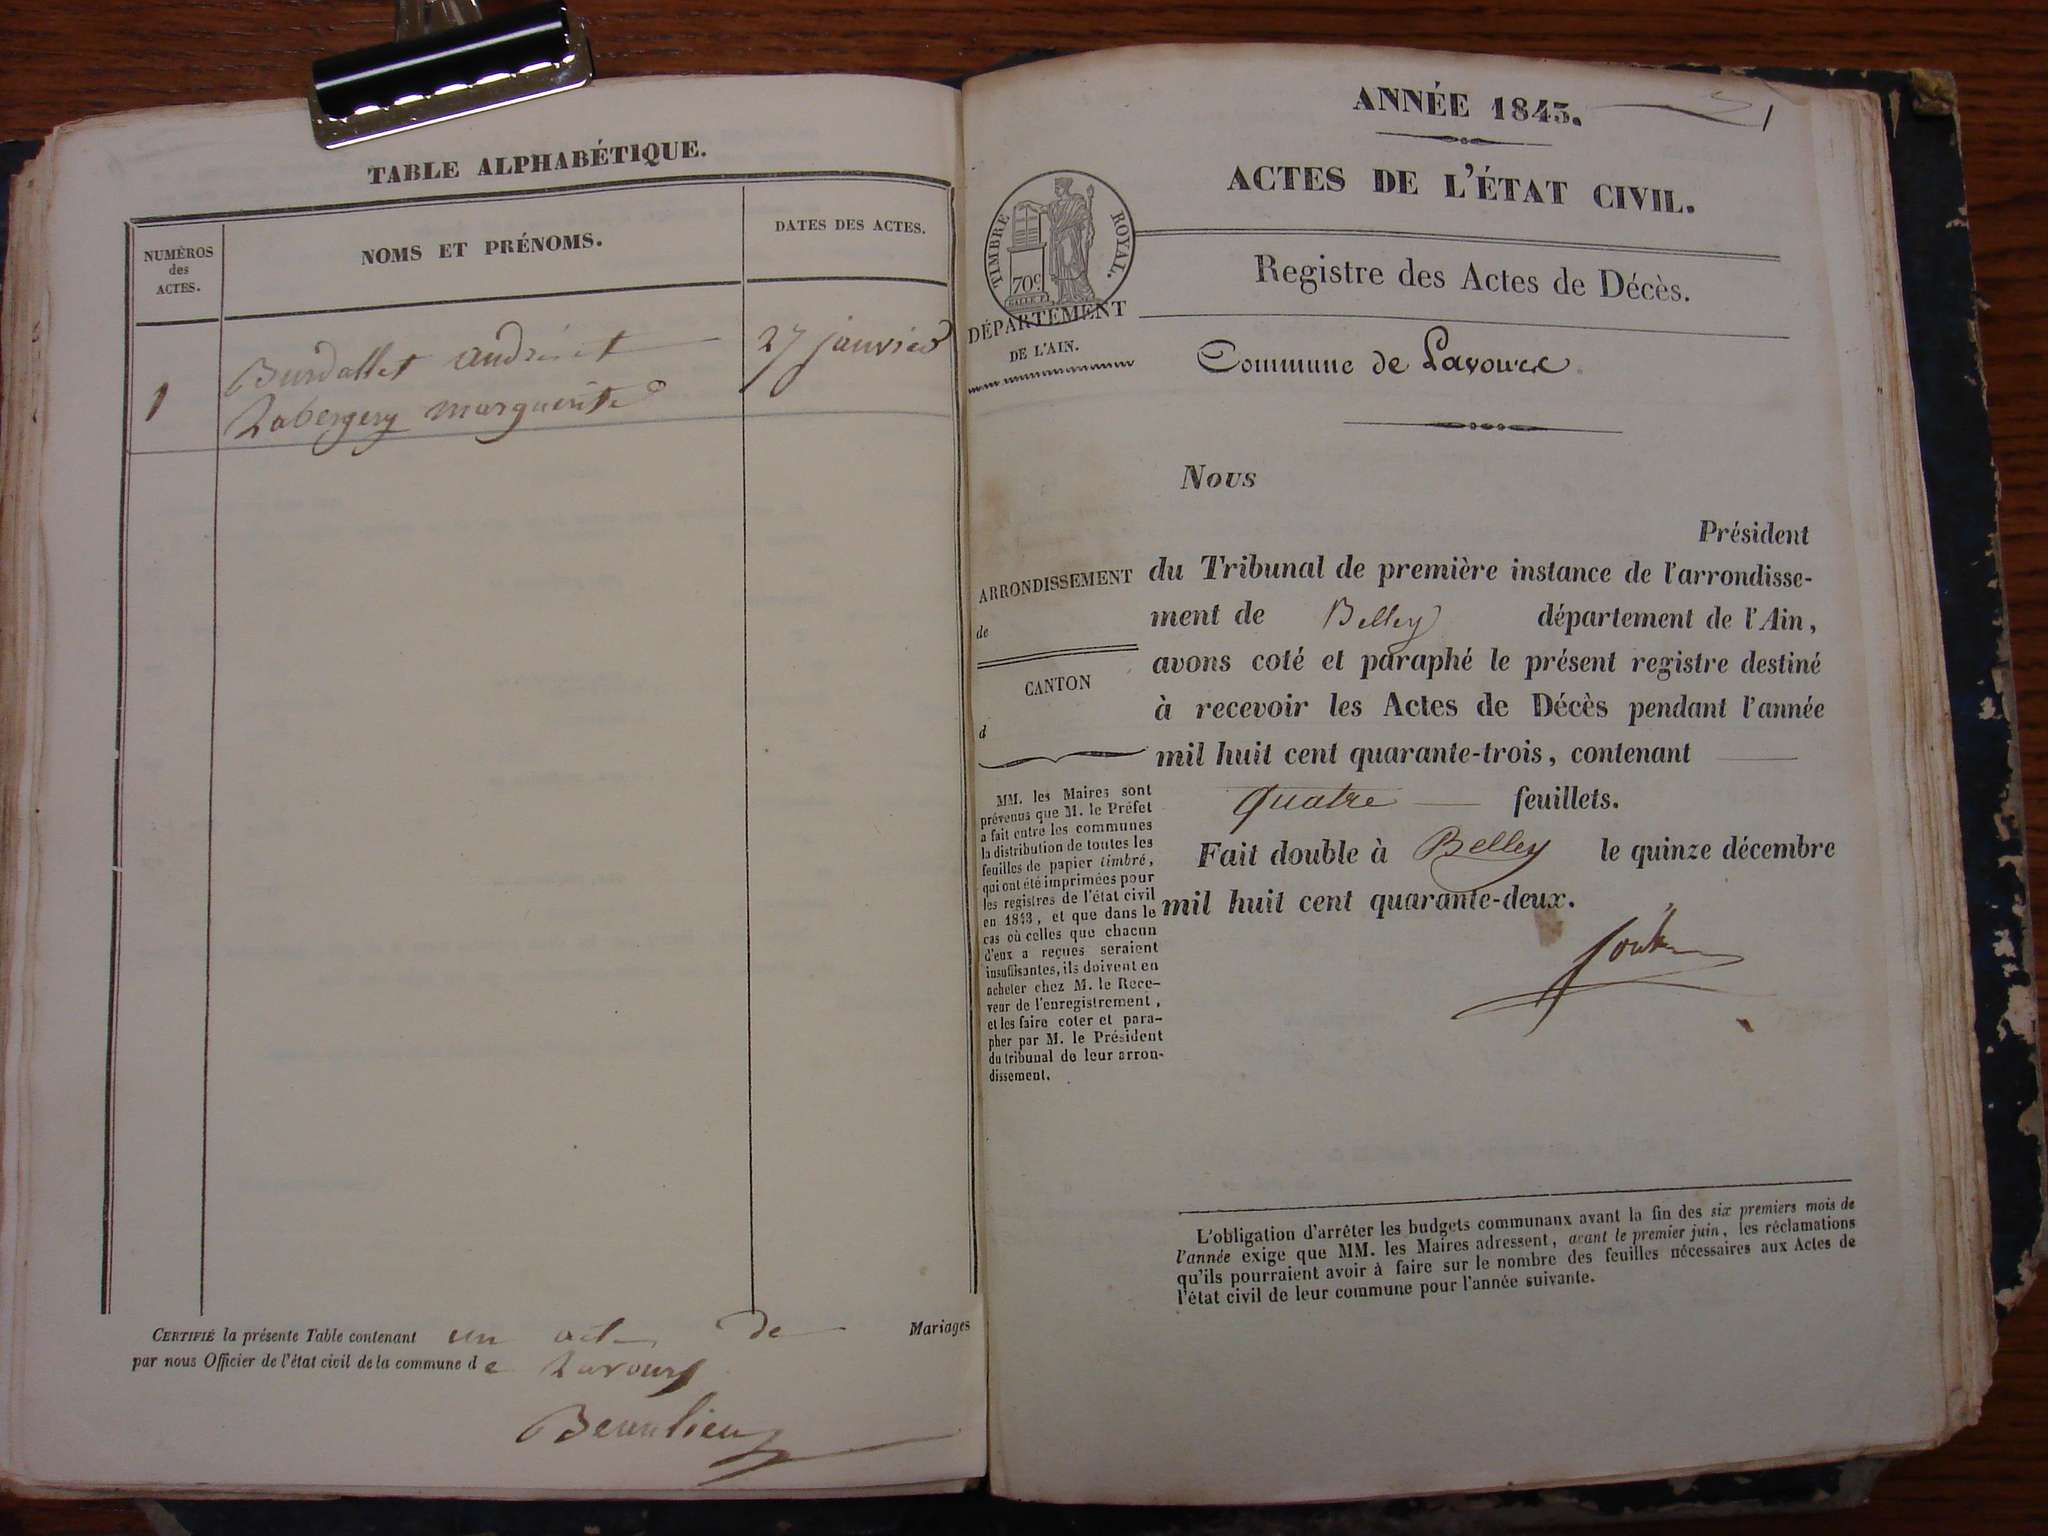 TABLE ALPHABÉTIQUE.
NUMÉROS
des
ACTES.
NOMS ET PRÉNOMS.
DATES DES ACTES.
1
Burdallet andré et
27 janvier
Labergery marguerite
CERTIFIÉ la présente Table contenant un acte de Mariages
par nous Officier de l'état civil de la commune de Lavours
Beaulieu
ANNÉE 1843.
1
ACTES DE L'ÉTAT CIVIL.
TIMBRE ROYAL.
70c
Registre des Actes de Décès.
DÉPARTEMENT
DE L'AIN.
Commune de Lavours
Nous
Président
ARRONDISSEMENT
de
CANTON
d
du Tribunal de première instance de l'arrondisse-
ment de Belley département de l'Ain,
avons coté et paraphé le présent registre destiné
à recevoir les Actes de Décès pendant l'année
mil huit cent quarante-trois, contenant
quatre feuillets.
Fait double à Belley le quinze décembre
mil huit cent quarante-deux.
MM. les Maires sont
prévenus que M. le Préfet
a fait entre les communes
la distribution de toutes les
feuilles de papier timbré,
qui ont été imprimées pour
les registres de l'état civil
en 1843, et que dans le
cas où celles que chacun
d'eux a reçues seraient
insuffisantes, ils doivent en
acheter chez M. le Rece-
veur de l'enregistrement,
et les faire coter et para-
pher par M. le Président
du tribunal de leur arron-
dissement.
L'obligation d'arrêter les budgets communaux avant la fin des six premiers mois de
l'année exige que MM. les Maires adressent, avant le premier juin, les réclamations
qu'ils pourraient avoir à faire sur le nombre des feuilles nécessaires aux Actes de
l'état civil de leur commune pour l'année suivante.